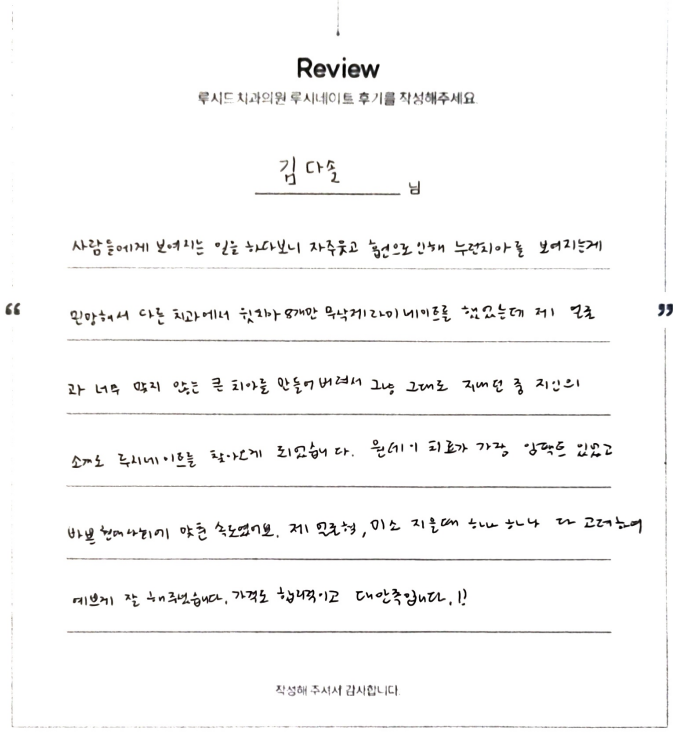 Review
루시드치과의원 루시네이트 후기를 작성해주세요.
김다솔 님
사람들에게 보여지는 일을 하다보니 자주웃고 흡연으로 인해 누런치아를 보여지는게
“ 민망해서 다른 치과에서 윗치아 8개만 무삭제라미네이트를 했었는데 제 얼굴 ”
과 너무 맞지 않는 큰 치아를 만들어버려서 그냥 그대로 지내던 중 지인의
소개로 루시네이트를 찾아오게 되었습니다. 원데이 치료가 가장 임팩트 있었고
바쁜 현대사회에 맞춘 속도였어요. 제 얼굴형, 미소 지을때 하나 하나 다 고려하여
예쁘게 잘 해주셨습니다. 가격도 합리적이고 대만족입니다.!!
작성해 주셔서 감사합니다.